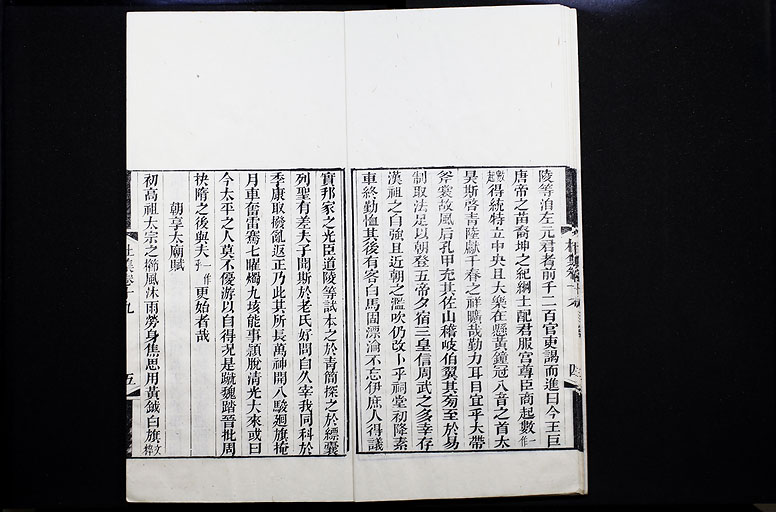 陵等洎左元君者前千二百官吏謁而進曰今王巨
唐帝之苗裔坤之紀綱土配君服宮尊臣商起數一作
數起得統特立中央且大樂在懸黃鐘冠八音之首太
昊斯啓青陸獻千春之祥曠哉勤力耳目宜乎大帶
斧裳故風后孔甲充其佐山稽岐伯翼其旁至於易
制取法足以朝登五帝夕宿三皇信周武之多幸存
漢祖之自強且近朝之濫吹仍改卜乎祠堂初降素
車終勤恤其後有客白馬固漂淪不忘伊庶人得議
實邦家之光臣道陵等試本之於青簡探之於縹囊
列聖有差夫子聞斯於老氏好問自久宰我同科於
季康取撥亂返正乃此其所長萬神開八駿迴旗掩
月車奮雷騫七曜燭九垓能事潁脫清光大來或曰
今太平之人莫不優游以自得況是蹴魏踏晉批周
抉隋之後與夫一作更始者哉
朝享太廟賦
初高祖太宗之櫛風沐雨勞身焦思用黃鉞白旗
杜集卷十九
五
四